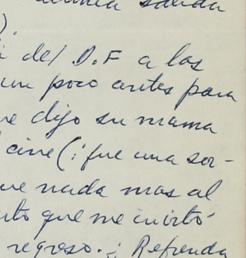 salida
).
del D.F a las
un poco antes para
ue dijo su mama
cine (¡fue una sor-
ue nada mas al
nto que me invitó
regreso. ¡ Refrenda